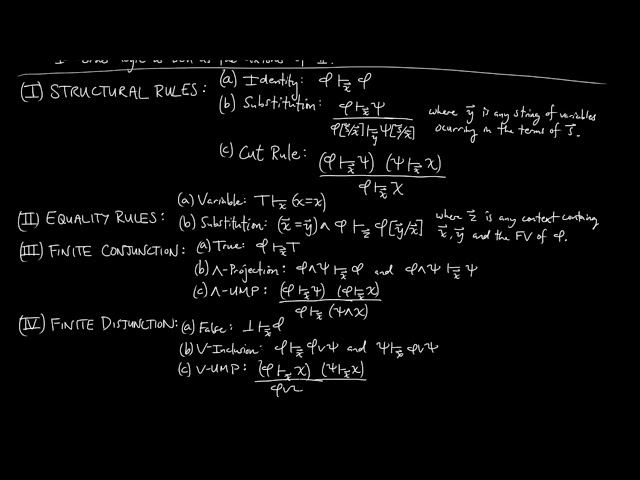 (I) STRUCTURAL RULES: (a) Identity: φ ⊢_x⃗ φ
(b) Substitution: φ ⊢_x⃗ ψ / φ[s⃗/x⃗] ⊢_y⃗ ψ[s⃗/x⃗] where y⃗ is any string of variables
ocurring in the terms of s⃗.
(c) Cut Rule: (φ ⊢_x⃗ ψ) (ψ ⊢_x⃗ χ) / φ ⊢_x⃗ χ
(a) Variable: ⊤ ⊢_x (x=x)
(II) EQUALITY RULES: (b) Substitution: (x⃗ = y⃗) ∧ φ ⊢_z⃗ φ[y⃗/x⃗] where z⃗ is any context containing
x⃗, y⃗ and the FV of φ.
(III) FINITE CONJUNCTION: (a) True: φ ⊢_x⃗ ⊤
(b) ∧-Projection: φ∧ψ ⊢_x⃗ φ and φ∧ψ ⊢_x⃗ ψ
(c) ∧-UMP: (φ ⊢_x⃗ ψ) (φ ⊢_x⃗ χ) / φ ⊢_x⃗ (ψ∧χ)
(IV) FINITE DISJUNCTION: (a) False: ⊥ ⊢_x⃗ φ
(b) ∨-Inclusion: φ ⊢_x⃗ φ∨ψ and ψ ⊢_x⃗ φ∨ψ
(c) ∨-UMP: (φ ⊢_x⃗ χ) (ψ ⊢_x⃗ χ) / φ∨